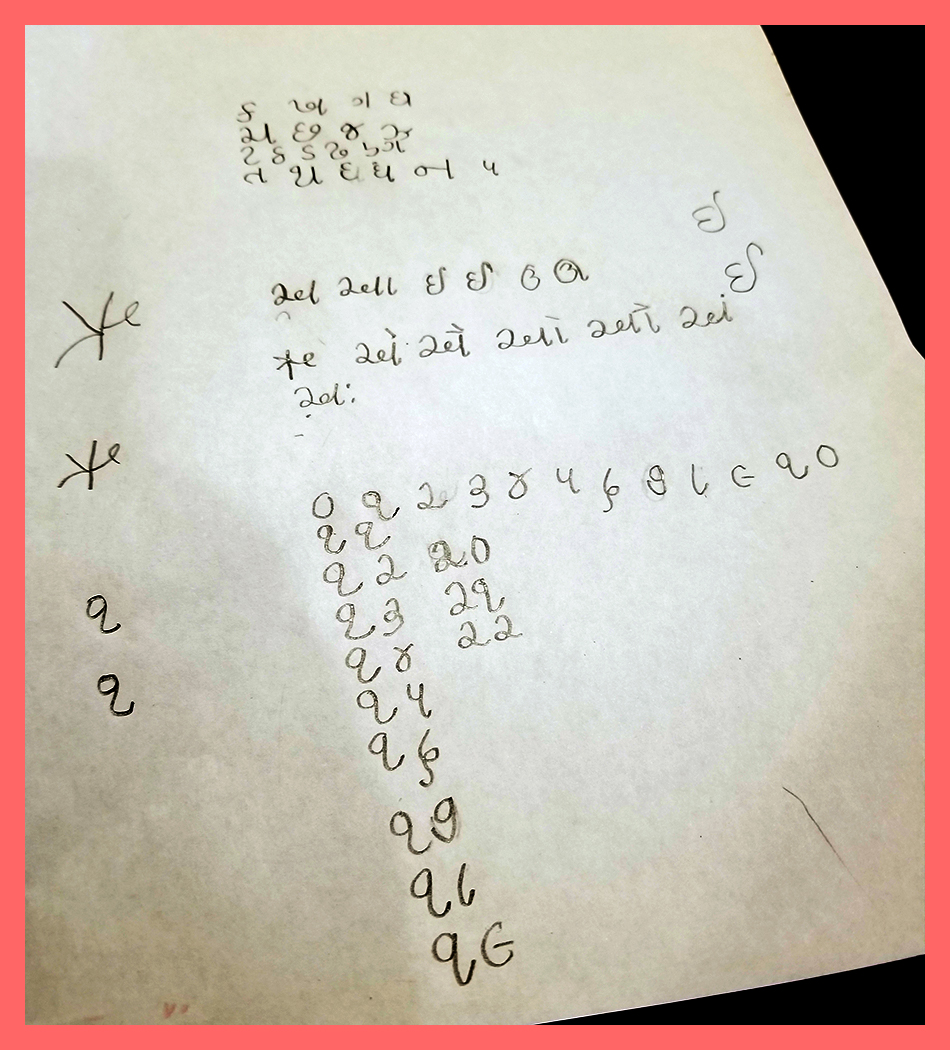 ક ખ ગ ઘ
ચ છ જ ઝ
ટ ઠ ડ ઢ ણ
ત થ દ ધ ન પ
ઈ
ઈ
અ આ ઇ ઈ ઉ ઊ
ઋ એ ઐ ઓ ઔ અં
અઃ
ઋ
ઋ
૦ ૧ ૨ ૩ ૪ ૫ ૬ ૭ ૮ ૯ ૧૦
૧૧
૧૨ ૨૦
૧૩ ૨૧
૧૪ ૨૨
૧૫
૧૬
૧૭
૧૮
૧૯
૧
૧